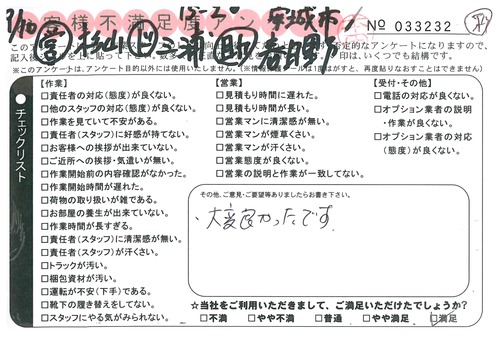 7/10 客様不満足度アン 安城市
No 033232
営 杉山 三浦 助
記入後
※このアンケートは、アンケート目的以外には使用いたしません。
チェックリスト
【作業】
□責任者の対応(態度)が良くない。
□他のスタッフの対応(態度)が良くない。
□作業を見ていて不安がある。
□責任者(スタッフ)に好感が持てない。
□お客様への挨拶が出来ていない。
□ご近所への挨拶・気遣いが無い。
□作業開始前の内容確認がなかった。
□作業開始時間が遅れた。
□荷物の取り扱いが雑である。
□お部屋の養生が出来ていない。
□作業時間が長すぎる。
□責任者(スタッフ)に清潔感が無い。
□責任者(スタッフ)が汗くさい。
□トラックが汚い。
□梱包資材が汚い。
□運転が不安(下手)である。
□靴下の履き替えをしてない。
□スタッフにやる気がみられない。
【営業】
□見積もり時間に遅れた。
□見積もり時間が長い。
□営業マンに清潔感が無い。
□営業マンが煙草くさい。
□営業マンが汗くさい。
□営業態度が良くない。
□営業の説明と作業が一致してない。
【受付・その他】
□電話の対応が良くない。
□オプション業者の説明
・作業が良くない。
□オプション業者の対応
(態度)が良くない。
その他、ご意見・ご要望等ありましたらお書き下さい。
・大変良かったです
☆当社をご利用いただきまして、ご満足いただけたでしょうか?
□不満 □やや不満 □普通 □やや満足 □満足